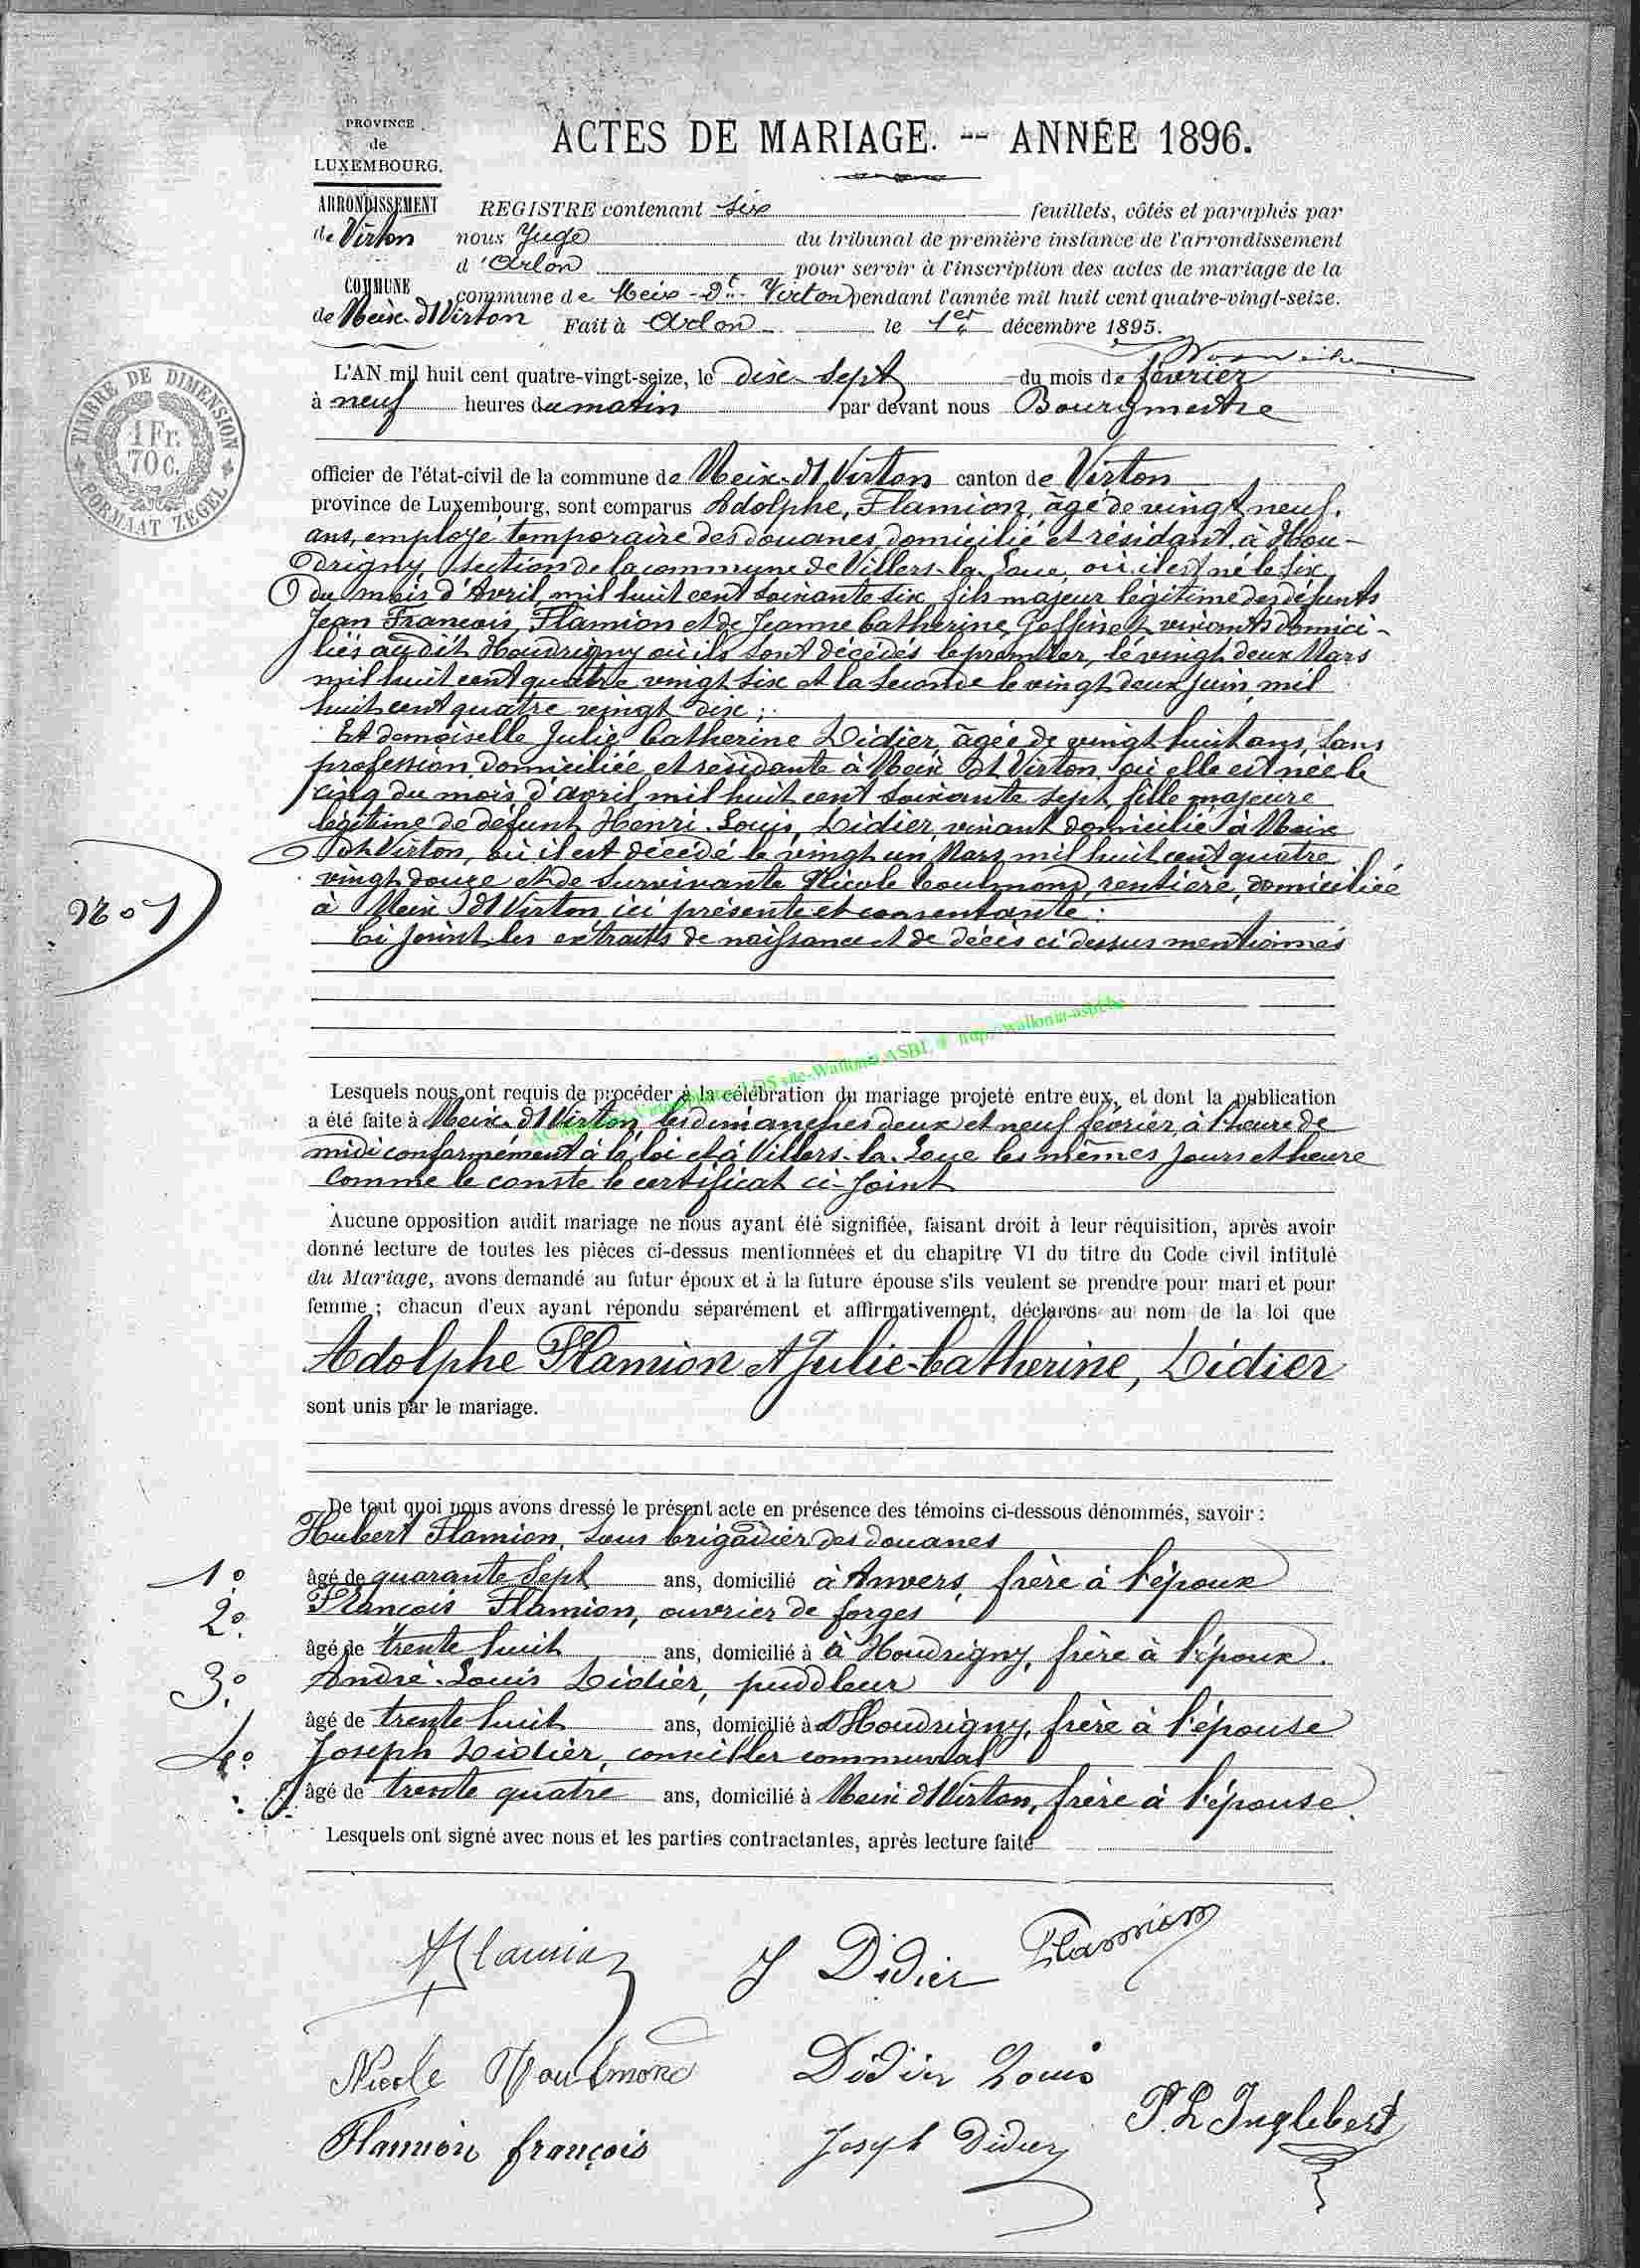 PROVINCE
de
LUXEMBOURG.
ACTES DE MARIAGE. -- ANNÉE 1896.
ARRONDISSEMENT
de Virton
COMMUNE
de Meix-dt Virton
REGISTRE contenant six feuillets, côtés et paraphés par
nous Juge du tribunal de première instance de l'arrondissement
d'Arlon pour servir à l'inscription des actes de mariage de la
commune de Meix-dt-Virton pendant l'année mil huit cent quatre-vingt-seize.
Fait à Arlon le 1er décembre 1895.
TIMBRE DE DIMENSION
1 Fr.
70 C.
FORMAAT ZEGEL
L'AN mil huit cent quatre-vingt-seize, le dix-sept du mois de février
à neuf heures du matin par devant nous Bourgmestre
officier de l'état-civil de la commune de Meix-dt Virton canton de Virton
province de Luxembourg, sont comparus Adolphe, Flamion, âgé de vingt neuf
ans, employé temporaire des douanes, domicilié et résidant à Hou-
drigny, section de la commune de Villers-la-Loue, où il est né le six
du mois d'Avril mil huit cent soixante six, fils majeur légitime des défunts
Jean François, Flamion et de Jeanne Catherine, Goffinet, vivants domici-
liés audit Houdrigny où ils sont décédés le premier, le vingt deux Mars
mil huit cent quatre vingt six et la seconde le vingt deux juin mil
huit cent quatre vingt dix;
Et demoiselle Julie Catherine Didier, âgée de vingt huit ans, sans
profession, domiciliée et résidante à Meix dt Virton, où elle est née le
cinq du mois d'avril mil huit cent soixante sept, fille majeure
légitime de défunt Henri-Louis, Didier, vivant domicilié à Meix
dt Virton, où il est décédé le vingt un Mars mil huit cent quatre
vingt douze et de survivante Nicole Toulmond, rentière, domiciliée
à Meix dt Virton, ici présente et consentante:
Ci joint les extraits de naissance et de décès ci dessus mentionnés
No 1
Lesquels nous ont requis de procéder à la célébration du mariage projeté entre eux, et dont la publication
a été faite à Meix-dt Virton, les dimanches deux et neuf février, à l'heure de
midi conformément à la loi et à Villers-la-Loue les mêmes jours et heure
comme le conste le certificat ci-joint
Aucune opposition audit mariage ne nous ayant été signifiée, faisant droit à leur réquisition, après avoir
donné lecture de toutes les pièces ci-dessus mentionnées et du chapitre VI du titre du Code civil intitulé
du Mariage, avons demandé au futur époux et à la future épouse s'ils veulent se prendre pour mari et pour
femme ; chacun d'eux ayant répondu séparément et affirmativement, déclarons au nom de la loi que
Adolphe Flamion et Julie-Catherine, Didier
sont unis par le mariage.
De tout quoi nous avons dressé le présent acte en présence des témoins ci-dessous dénommés, savoir :
Hubert Flamion, sous brigadier des douanes
1o âgé de quarante sept ans, domicilié à Anvers, frère à l'époux
2o François Flamion, ouvrier de forges
âgé de trente huit ans, domicilié à à Houdrigny, frère à l'époux.
3o André-Louis Didier, puddleur
âgé de trente huit ans, domicilié à Houdrigny, frère à l'épouse
4o Joseph Didier, conseiller communal
âgé de trente quatre ans, domicilié à Meix dt Virton, frère à l'épouse.
Lesquels ont signé avec nous et les parties contractantes, après lecture faite
A Flamion
J Didier
Flamion
Nicole Toulmond
Didier Louis
P. L Inglebert
Flamion françois
Joseph Didier